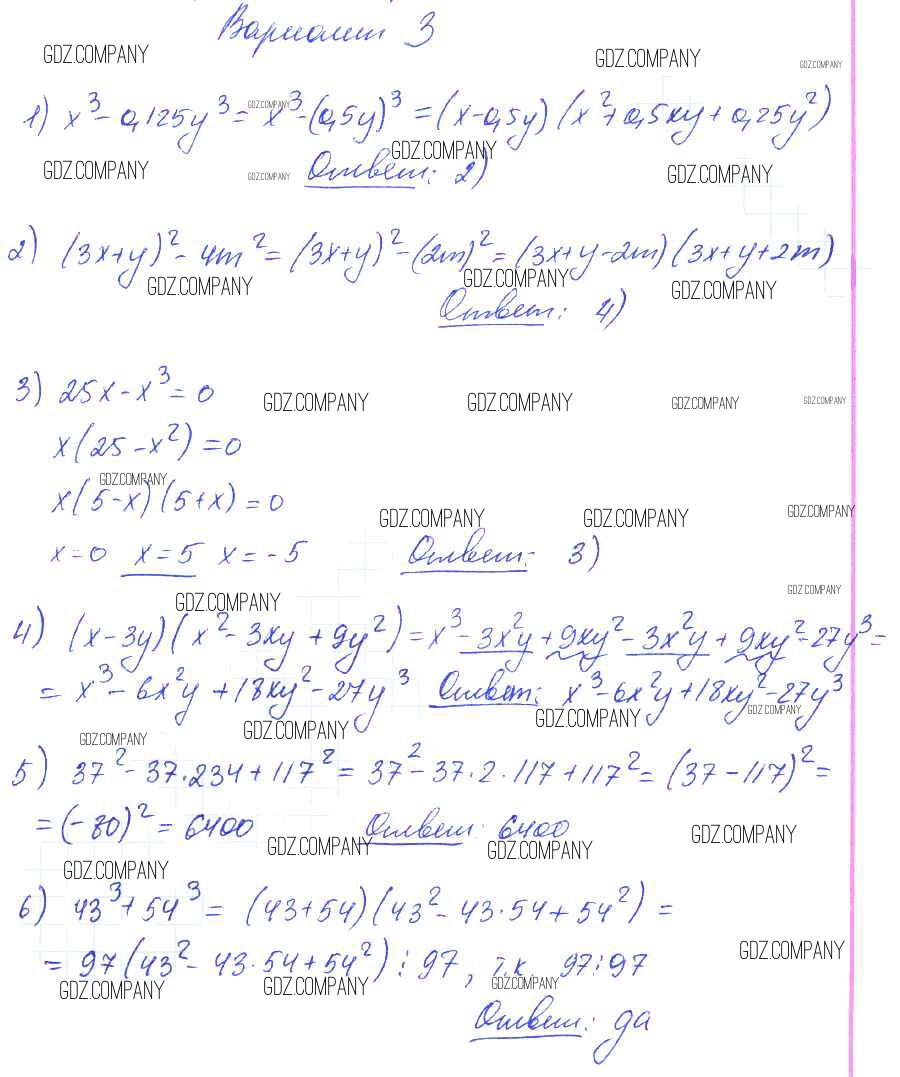 Вариант 3
GDZ.COMPANY GDZ.COMPANY GDZ.COMPANY
1) x³ - 0,125y³ = x³ - (0,5y)³ = (x - 0,5y) (x² + 0,5xy + 0,25y²)
GDZ.COMPANY GDZ.COMPANY
Ответ: 2)
GDZ.COMPANY GDZ.COMPANY GDZ.COMPANY
2) (3x+y)² - 4m² = (3x+y)² - (2m)² = (3x+y-2m) (3x+y+2m)
GDZ.COMPANY GDZ.COMPANY GDZ.COMPANY
Ответ: 4)
3) 25x - x³ = 0
GDZ.COMPANY GDZ.COMPANY GDZ.COMPANY GDZ.COMPANY
x(25 - x²) = 0
GDZ.COMPANY
x(5-x)(5+x) = 0
GDZ.COMPANY GDZ.COMPANY GDZ.COMPANY
x=0 x=5 x=-5 Ответ: 3)
GDZ.COMPANY GDZ.COMPANY
4) (x-3y)(x² - 3xy + 9y²) = x³ - 3x²y + 9xy² - 3x²y + 9xy² - 27y³ =
= x³ - 6x²y + 18xy² - 27y³ Ответ: x³ - 6x²y + 18xy² - 27y³
GDZ.COMPANY GDZ.COMPANY GDZ.COMPANY GDZ.COMPANY
5) 37² - 37·234 + 117² = 37² - 37·2·117 + 117² = (37 - 117)² =
= (-80)² = 6400 Ответ: 6400
GDZ.COMPANY GDZ.COMPANY GDZ.COMPANY GDZ.COMPANY
6) 43³ + 54³ = (43+54)(43² - 43·54 + 54²) =
= 97(43² - 43·54 + 54²) ⋮ 97, т.к. 97 ⋮ 97
GDZ.COMPANY GDZ.COMPANY GDZ.COMPANY GDZ.COMPANY
Ответ: да